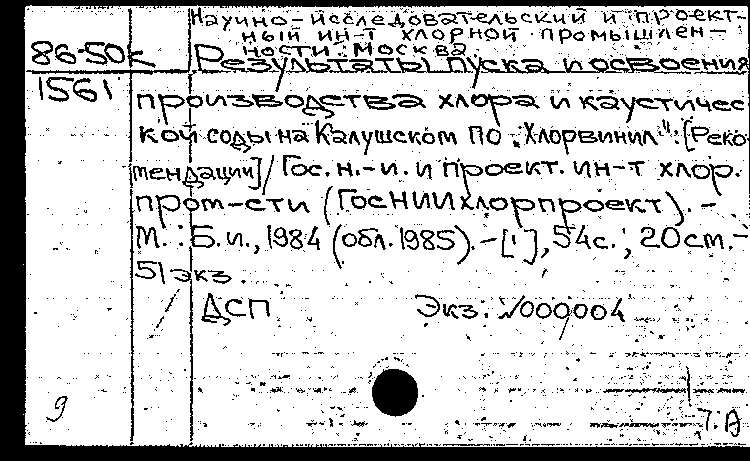 Научно-исследовательский и проект-
ный ин-т хлорной промышлен-
ности. Москва
86-50к
Результаты пуска и освоения
1561
производства хлора и каустичес
кой соды на Калушском ПО „Хлорвинил": [Реко-
мендации] / Гос. н.-и. и проект. ин-т хлор.
пром-сти (ГосНИИхлорпроект). -
М. : Б.и., 1984 (обл. 1985). - [1], 54с. ; 20см. -
51 экз.
ДСП Экз. №000004
9